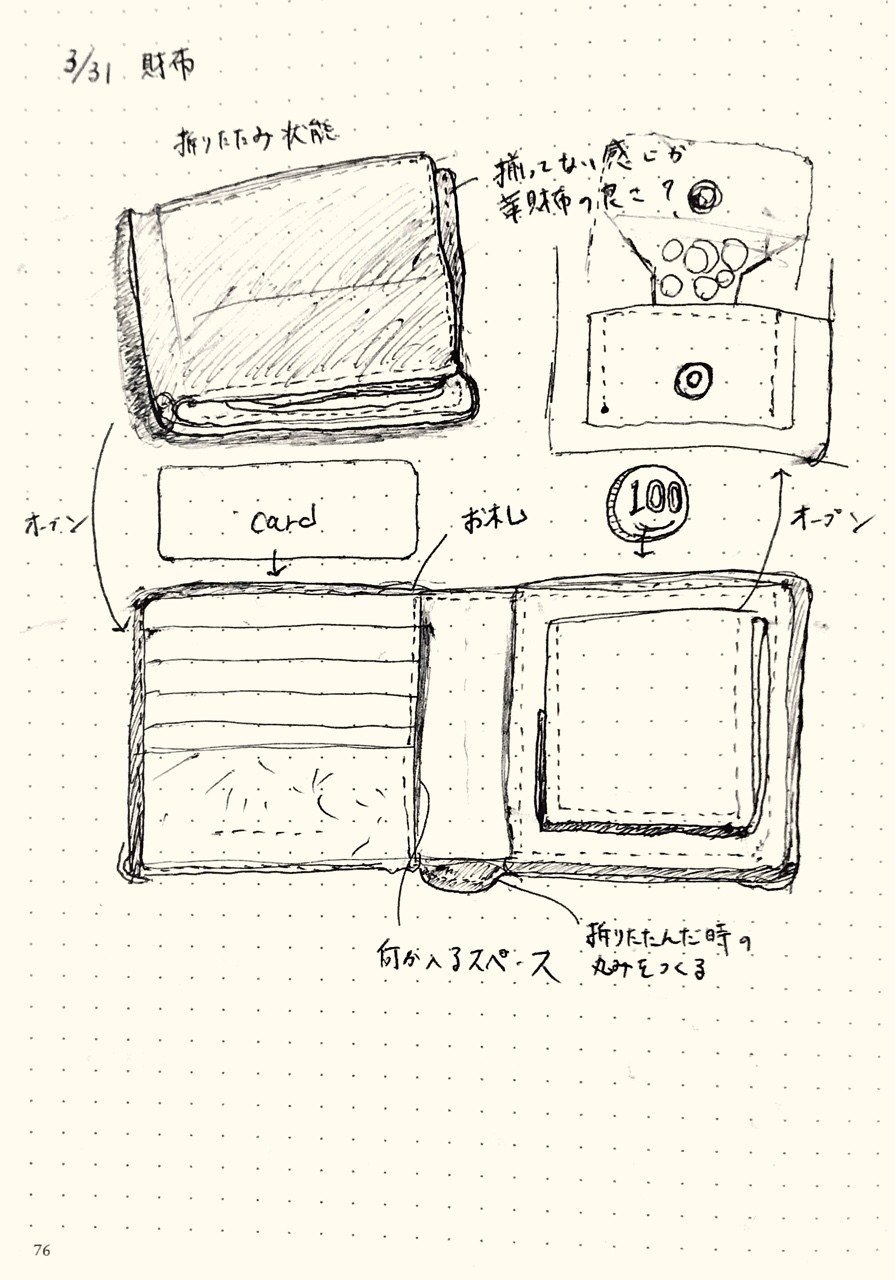 3/31 財布
折りたたみ状態
揃ってない感じが
革財布の良さ？
オープン
card
お札
100
オープン
何か入るスペース
折りたたんだ時の
丸みをつくる
76